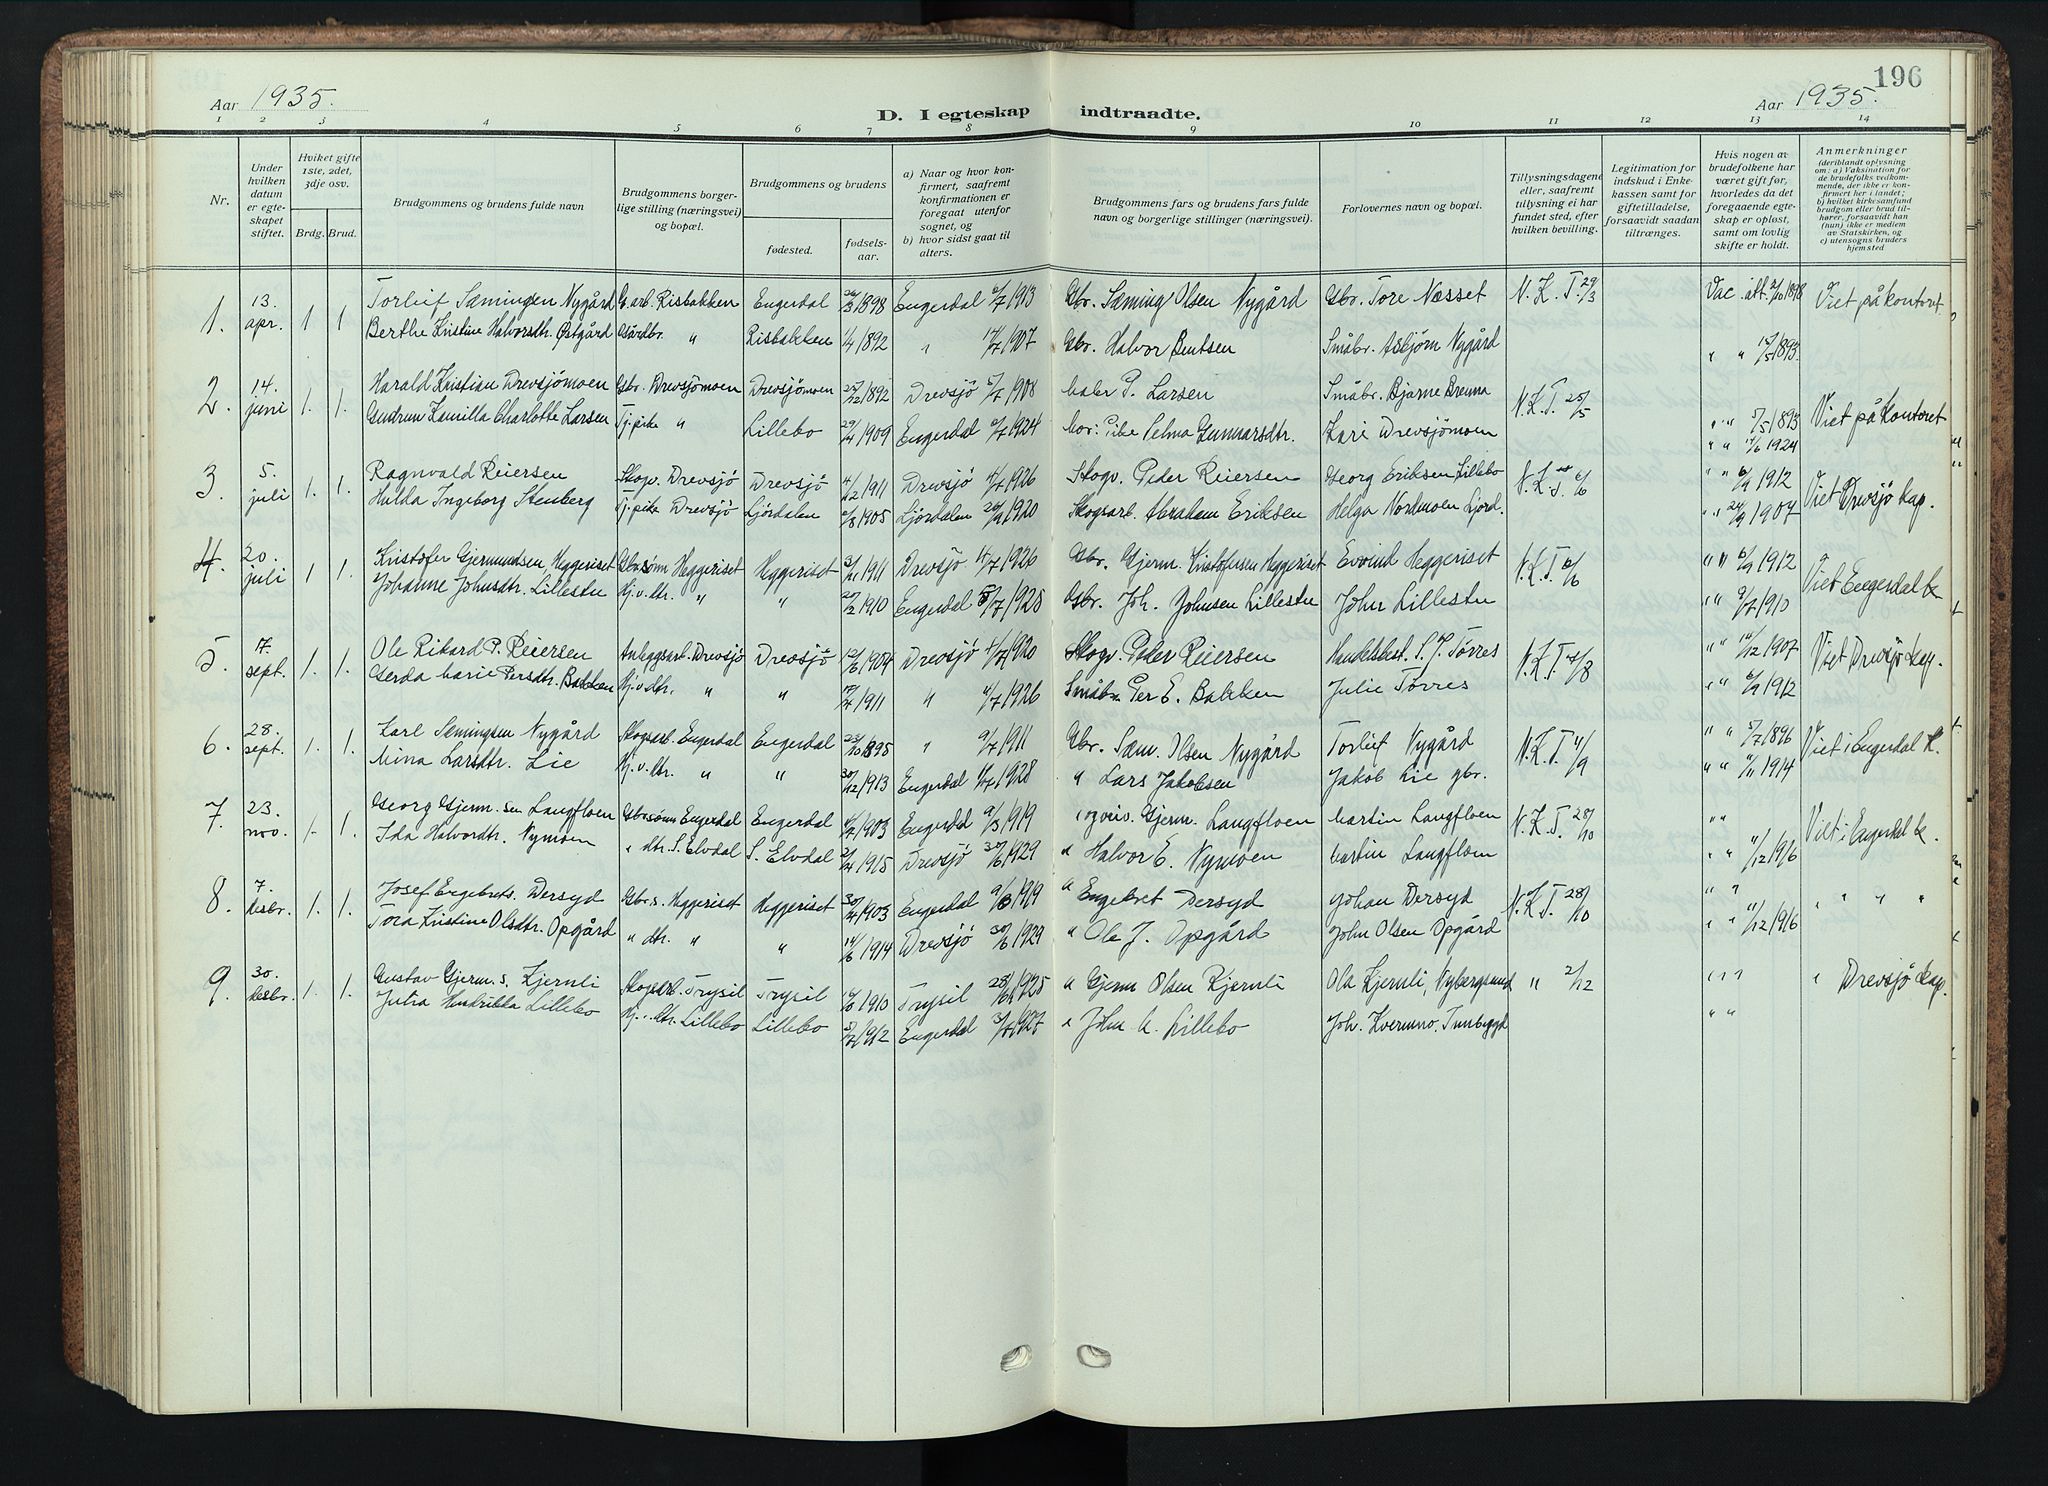 Aar 1935.
D. I egteskap indtraadte.
Aar 1935.
196
1 2 3 4 5 6 7 8 9 10 11 12 13 14
Nr.
Under hvilken datum er egteskapet stiftet.
Hvilket gifte 1ste, 2det, 3dje osv.
Brdg. Brud.
Brudgommens og brudens fulde navn
Brudgommens borgerlige stilling (næringsvei) og bopæl.
Brudgommens og brudens
fødested.
fødselsaar.
a) Naar og hvor konfirmert, saafremt konfirmationen er foregaat utenfor sognet, og
b) hvor sidst gaat til alters.
Brudgommens fars og brudens fars fulde navn og borgerlige stillinger (næringsvei).
Forlovernes navn og bopæl.
Tillysningsdagene eller, saafremt tillysning ei har fundet sted, efter hvilken bevilling.
Legitimation for indskud i Enkekassen samt for giftetilladelse, forsaavidt saadan tiltrænges.
Hvis nogen av brudefolkene har været gift før, hvorledes da det foregaaende egteskap er opløst, samt om lovlig skifte er holdt.
Anmerkninger
(deriblandt oplysning om: a) Vaksination for de brudefolks vedkommende, der ikke er konfirmert her i landet; b) hvilket kirkesamfund brudgom eller brud tilhører, forsaavidt han (hun) ikke er medlem av Statskirken, og c) utensogns bruders hjemsted
1. 13. apr. 1 1 Torleif Sæmingsen Nygård G.arb. Risbakken Engerdal 1898 Engerdal 1913 Gbr. Sæming Olsen Nygård Gbr. Tore Næsset N.K.T. 29/3 Vac. att. 1898 Viet på kontoret
Berthe Kristine Halvorsdtr. Østgård Gårdbr. " Risbakken 1/4 1892 " 1907 Gbr. Halvor Bentsen Småbr. Asbjørn Nygård " " 1893
2. 14. juni 1. 1. Harald Kristian Drevsjømoen Gbr. Drevsjømoen Drevsjømoen 1892 Drevsjø 1908 P. Larsen Småbr. Bjarne Brenna N.K.T. 25/5 " " 5/5 1893 Viet på kontoret
Gudrun Kamilla Charlotte Larsen Tj.pike " Lillebo 29/4 1909 Engerdal 1924 Mor: Pike Selma Gunnarsdtr. Kari Drevsjømoen " " 1924
3. 5. juli 1. 1. Ragnvald Reiersen Skogv. Drevsjø Drevsjø 4/2 1911 Drevsjø 4/7 1926 Skogv. Peder Reiersen Georg Eriksen Lillebo N.K.T. 6/6 " " 6/9 1912 Viet Drevsjø kap.
Hilda Ingeborg Stenberg Tj.pike Drevsjø Ljørdalen 1905 Ljørdalen 1920 Skogsarb. Abraham Eriksen Helga Nordmoen Ljørd. " " 24/9 1907
4. 20. juli 1 1. Kristofer Gjermundsen Heggeriset Gbr.sønn Heggeriset Heggeriset 1911 Drevsjø 4/7 1926 Gbr. Gjerm. Kristofersen Heggeriset Eivind Heggeriset N.K.T. " " 6/9 1912 Viet Engerdal k.
Johanne Johnsdtr. Lillestu Hj.v. dtr. " " 1910 Engerdal 8/7 1928 Gbr. Joh. Johnsen Lillestu John Lillestu " " 9/7 1910
5. 17. sept. 1. 1. Ole Rikard P. Reiersen Anleggsarb. Drevsjø Drevsjø 12/6 1904 Drevsjø 1920 Skogv. Peder Reiersen Handelsbest. S. J. Tørres N.K.T. " " 1907 Viet Drevsjø kap.
Gerda Marie Persdtr. Bakken Hj.v. dtr. " " 1911 " 4/7 1926 Småbr. Per E. Bakken Julie Tørres " " 6/9 1912
6. 28. sept. 1. 1. Karl Semingsen Nygård Skogsarb. Engerdal Engerdal 23/10 1895 " 9/7 1911 Gbr. Sæm. Olsen Nygård Torleif Nygård N.K.T. 11/9 " " 5/7 1896 Viet i Engerdal K.
Mina Larsdtr. Lie Hj.v. dtr. " " 30/12 1913 Engerdal 1928 " Lars Jakobsen Jakob Lie gbr. " " 1914
7. 23. nov. 1. 1. Georg Gjerm.sen Langfloen Gbr.sønn Engerdal Engerdal 1903 Engerdal 9/3 1919 Gjerm. Langfloen Martin Langfloen N.K.T. 28/10 " " Viet i Engerdal k.
Ida Halvordtr. Nymoen " dtr. S. Elvdal S. Elvdal 1915 Drevsjø 30/6 1929 " Halvor E. Nymoen Martin Langfloen " " 11/12 1916
8. 7. desbr. 1. 1. Josef Engebrets. Dersyd Gbr.s. Heggeriset Heggeriset 30/4 1903 Engerdal 9/3 1919 " Engebret Dersyd Johan Dersyd N.K.T. 28/10 " " " " " "
Tora Kristine Olsdtr. Opgård " dtr. " " 14/6 1914 Drevsjø 30/6 1929 " Ole J. Opgård John Olsen Opgård " " 11/12 1916
9. 30. desbr. 1. 1. Gustav Gjerm.s. Kjernli Skogsarb. Trysil Trysil 1910 Trysil 1925 " Gjerm Olsen Kjernli Ola Kjernli, Nybergsund " 2/12 " " " Drevsjø kap.
Jutta Hendrikka Lillebo Hj.v. dtr. Lillebo Lillebo 1912 Engerdal 1927 " John A. Lillebo Joh. Kvermo. Tunbygd " "